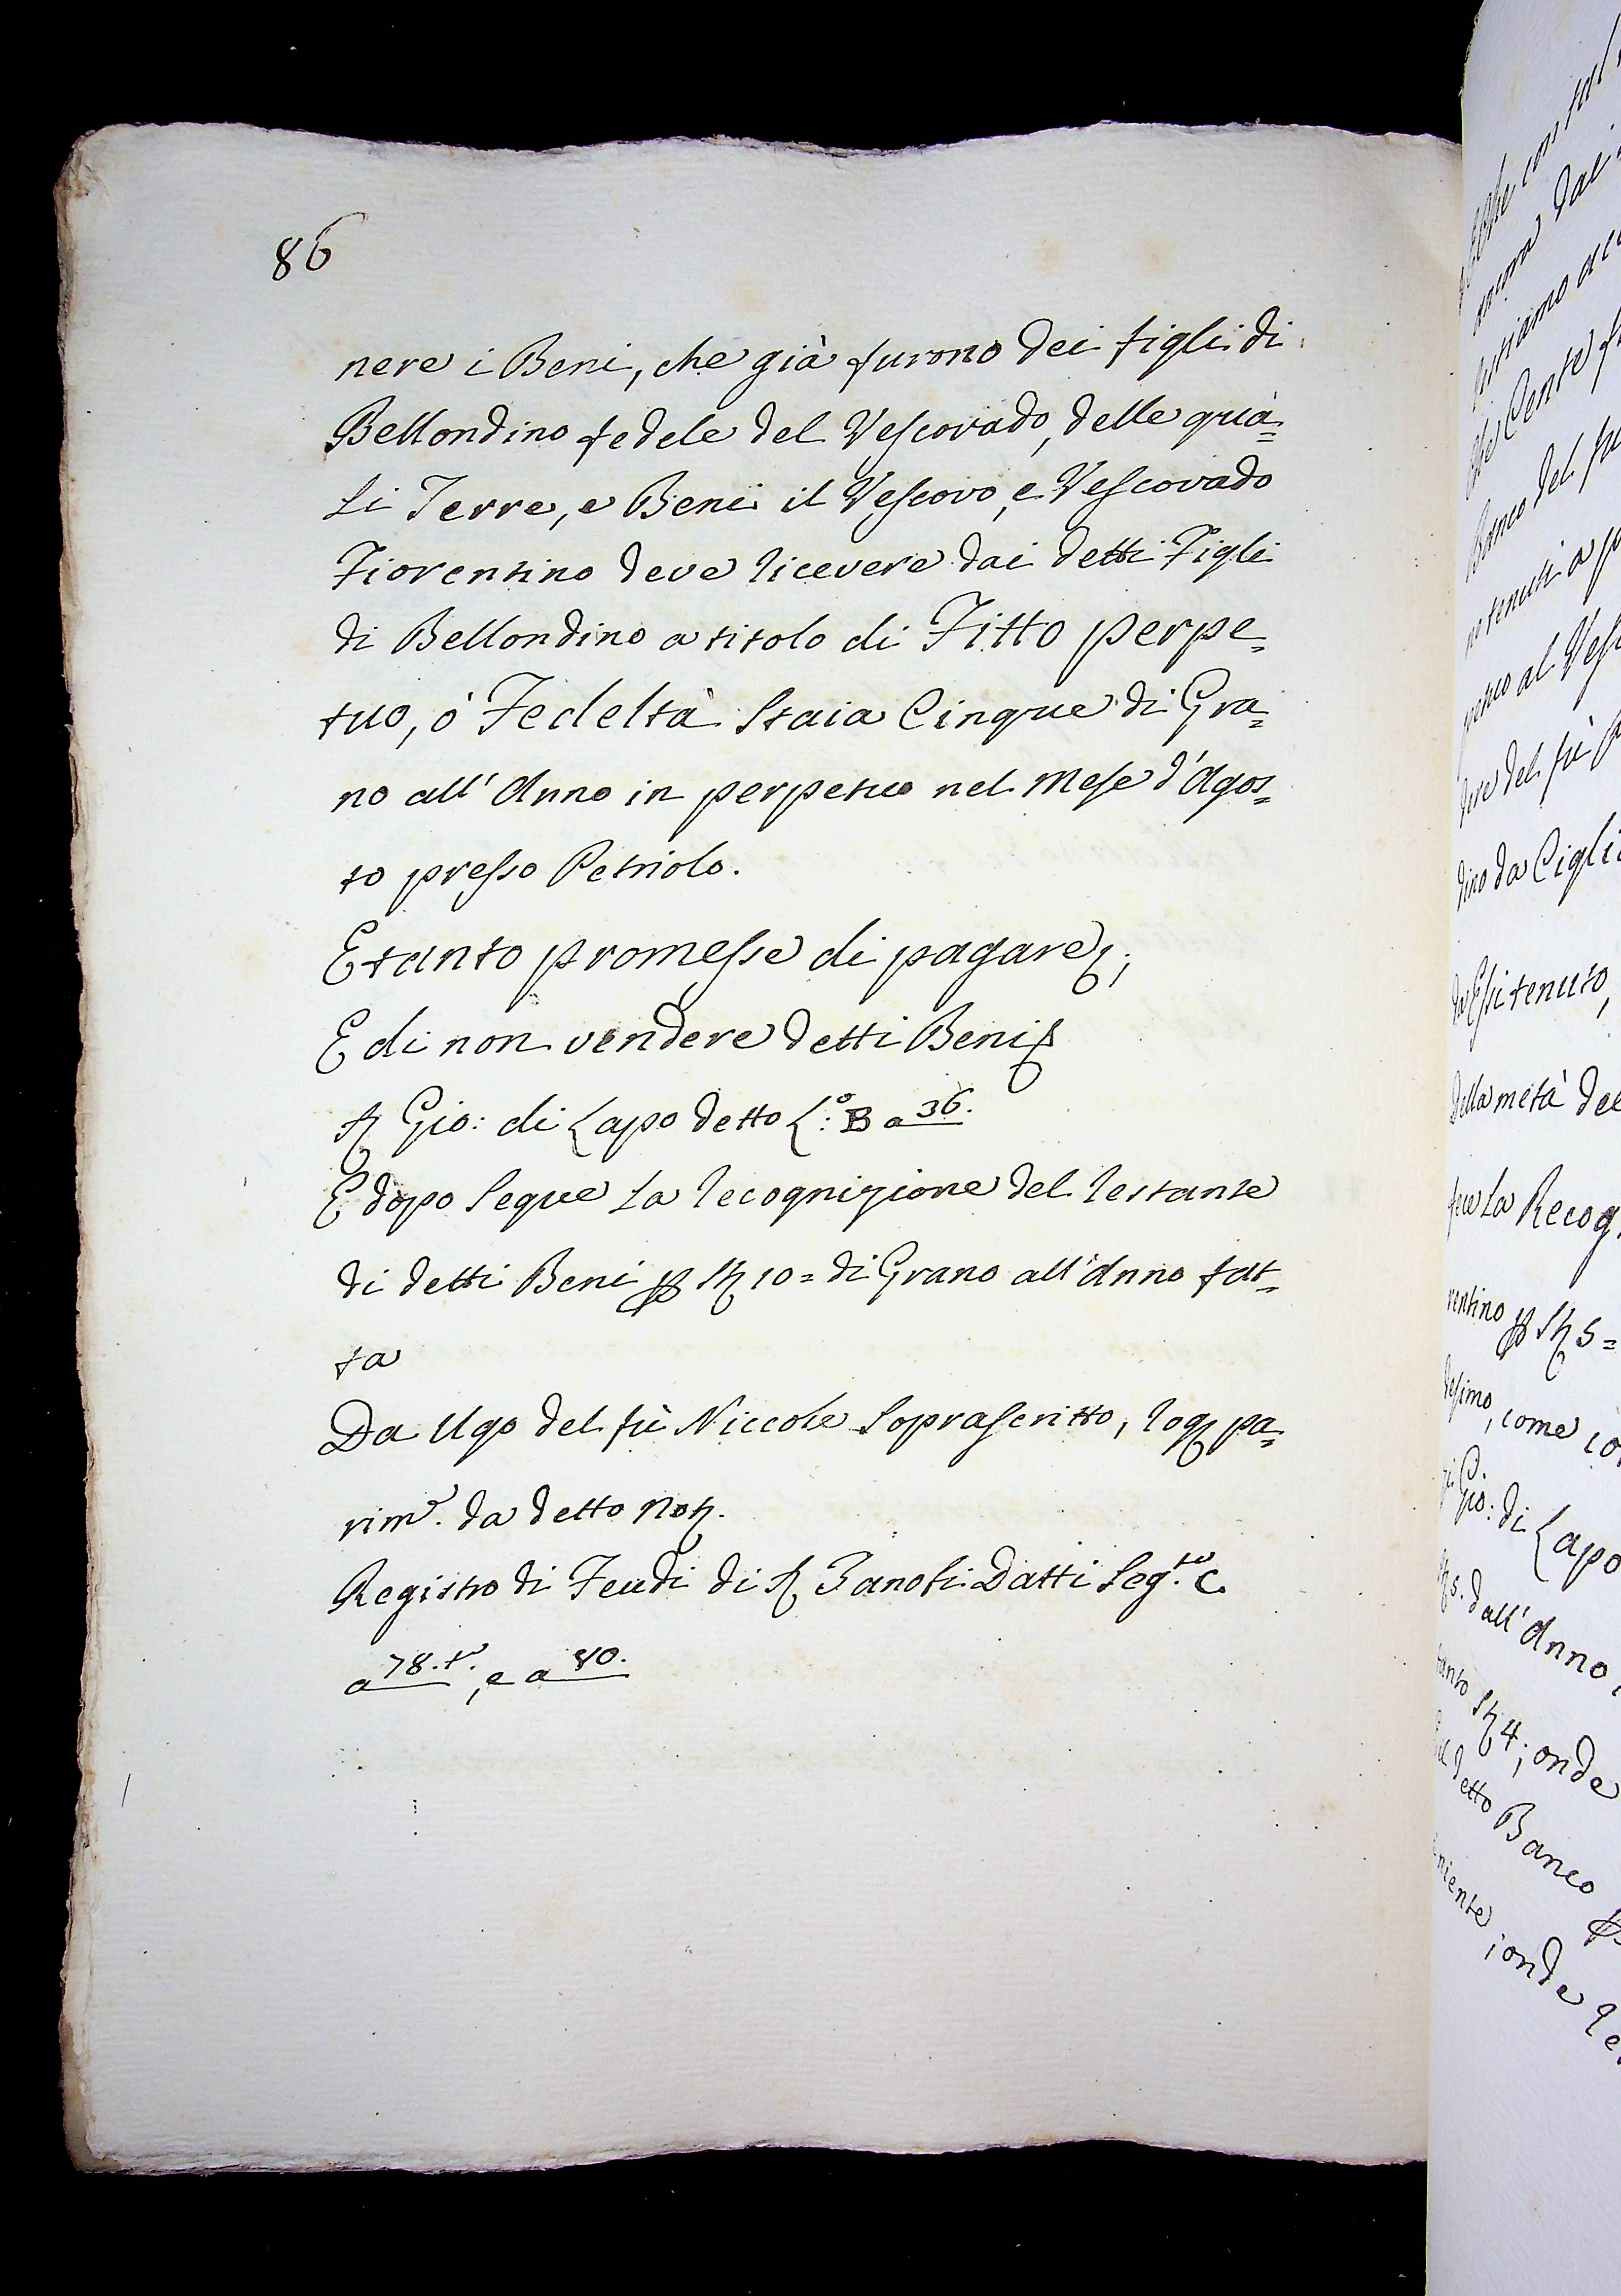 86
nere i Beni, che già furono dei figli di
Bellondino fedele del Vescovado, delle qua=
li Terre, e Beni il Vescovo, e Vescovado
Fiorentino deve ricevere dai detti Figli
di Bellondino a titolo di Fitto perpe=
tuo, ò Fedeltà Staia Cinque di Gra=
no all'Anno in perpetuo nel Mese d'Agos=
to presso Petriolo.
E tanto promesse di pagare;
E di non vendere detti Beni
Gio: di Lapo detto L.º B a 36.
E dopo segue la recognizione del restante
di detti Beni 10= di Grano all'Anno fat=
ta
Da Ugo del fù Niccole soprascritto, rog. pa=
rim.e da detto Not.
Registro di Feudi di Zanobi Datti Seg.to C.
a 78.to, e a 80.
ancora dal
del fù
no tenuti a
al Vesc
dino da Cigli
da Essi tenuto,
della metà de
fece la Recog
rentino 5=
desimo, come co
Gio: di Lapo
dall'Anno
4; onde
detto Banco
niente; onde